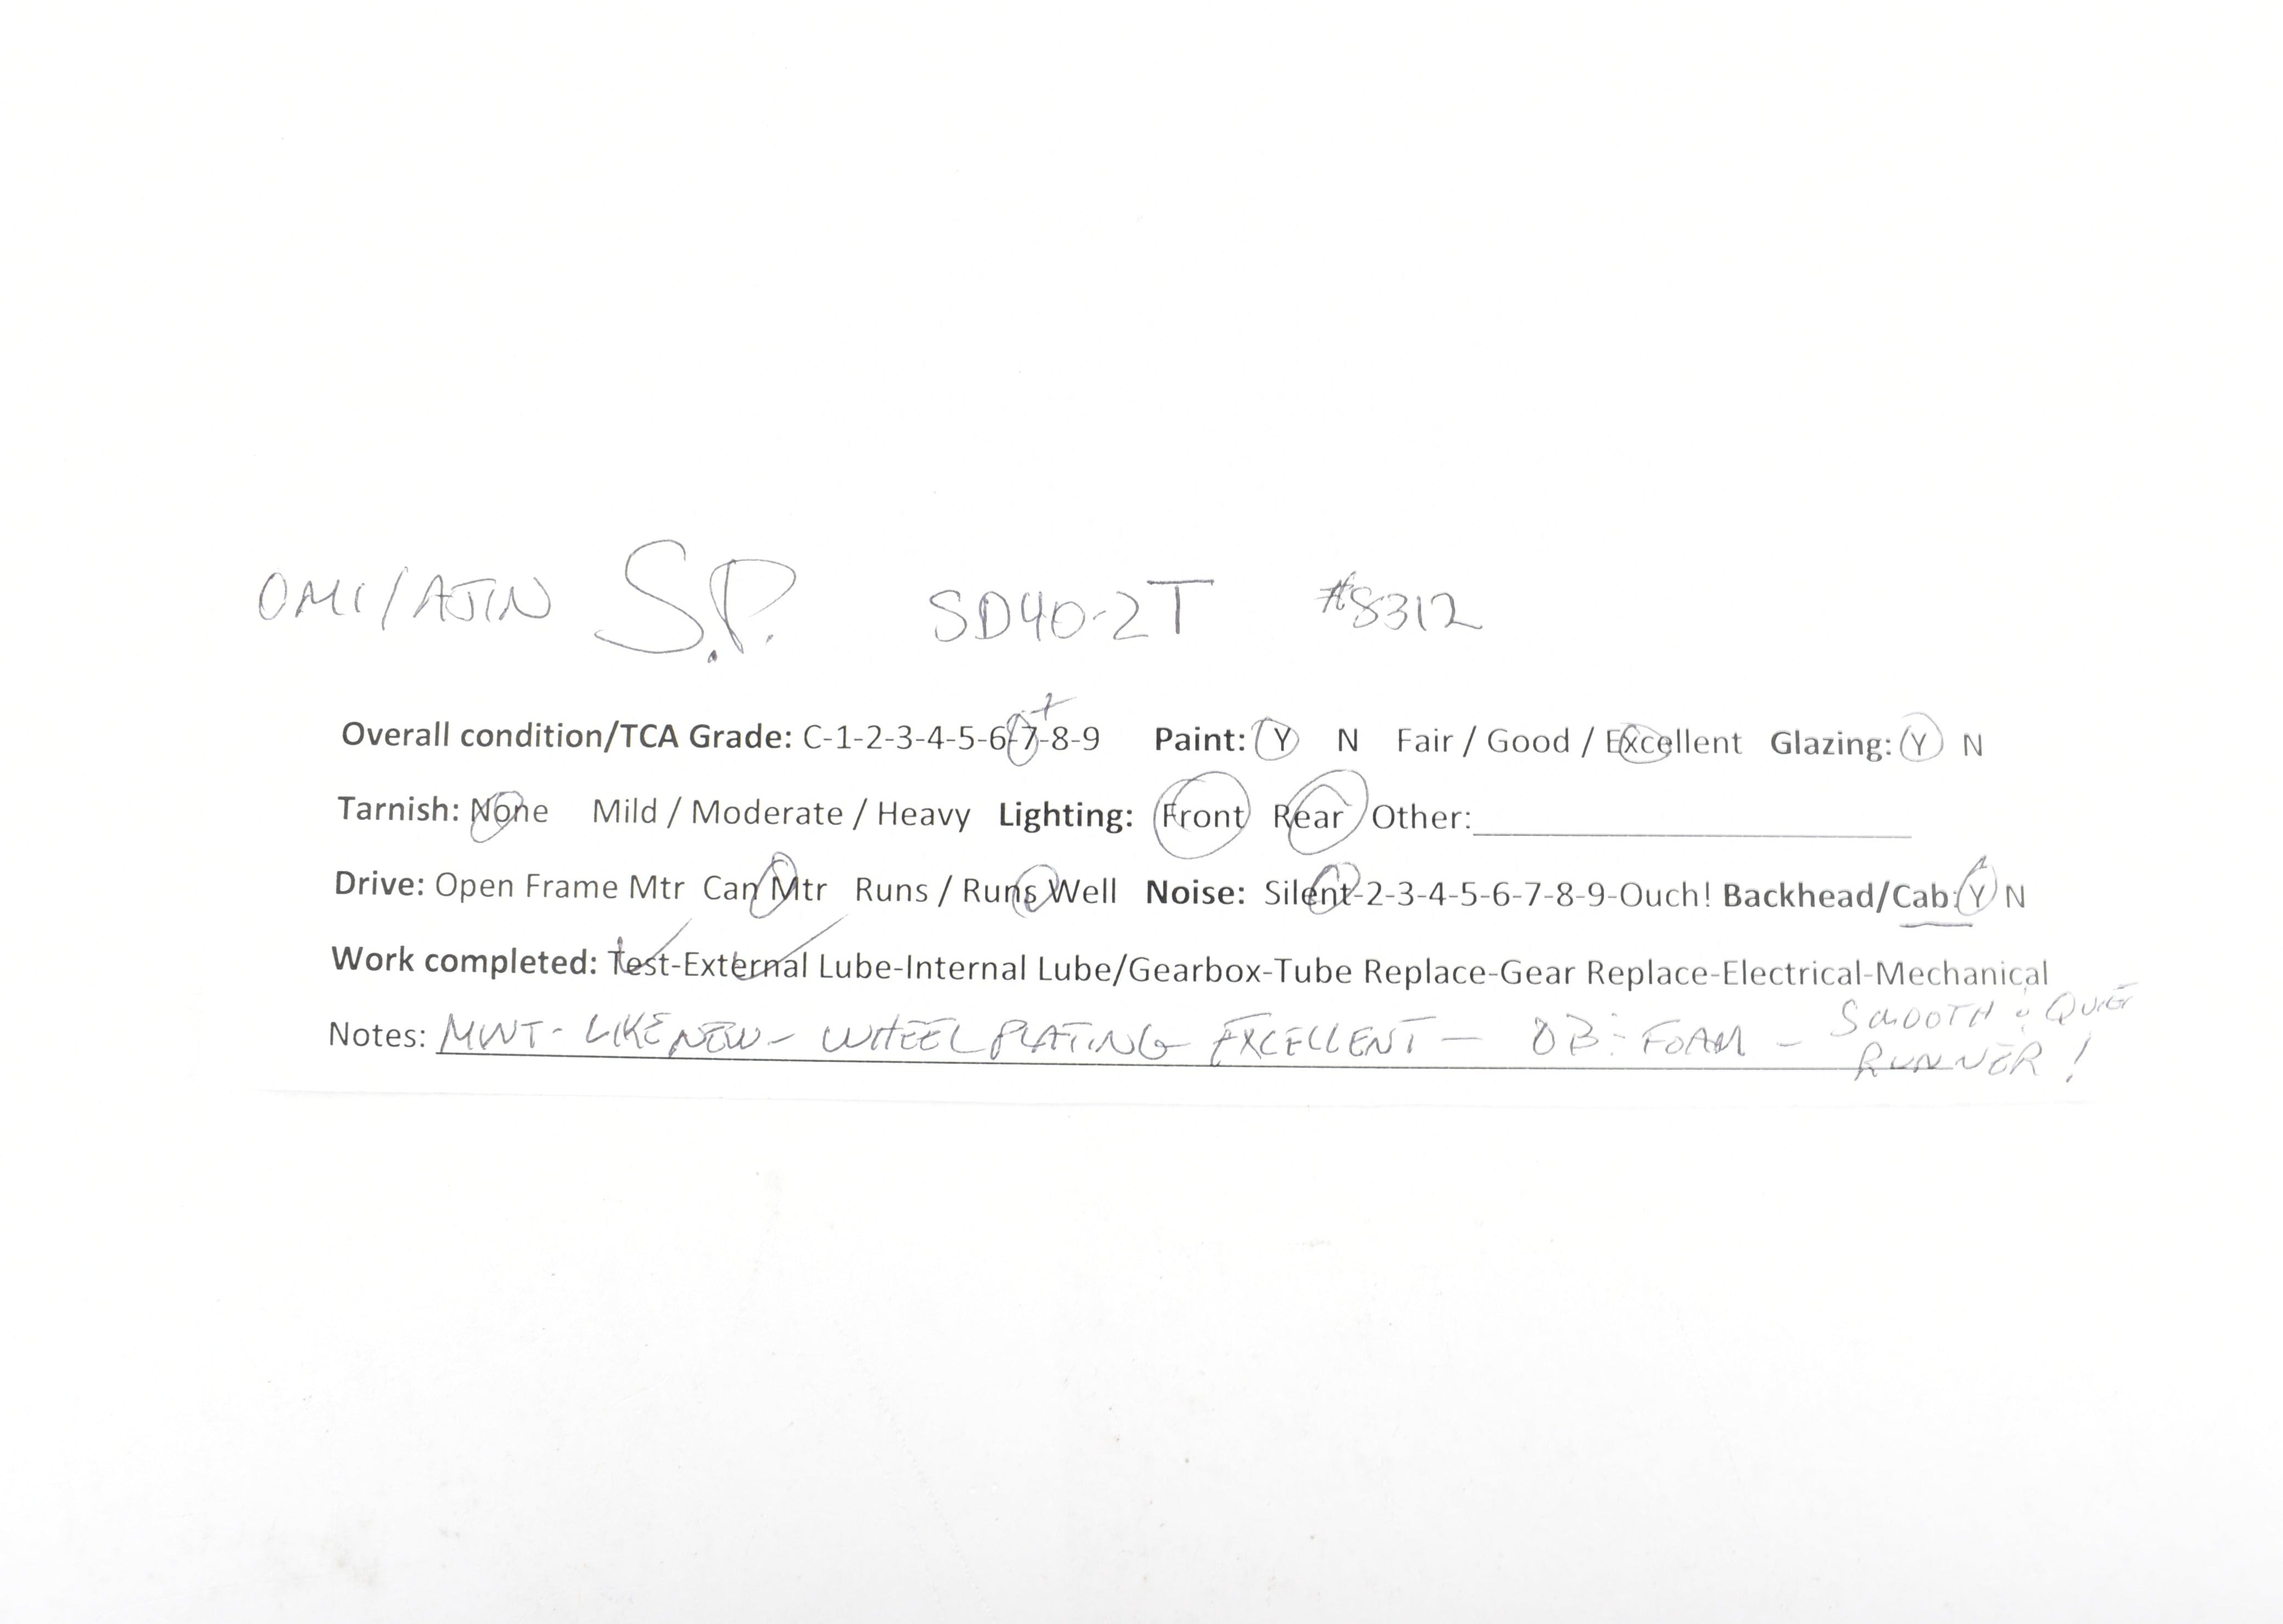 OMI/AJIN S.P. SD40-2T #8312
Overall condition/TCA Grade: C-1-2-3-4-5-6-7-8-9 + Paint: Y N Fair / Good / Excellent Glazing: Y N
Tarnish: None Mild / Moderate / Heavy Lighting: Front Rear Other:
Drive: Open Frame Mtr Can Mtr Runs / Runs Well Noise: Silent-2-3-4-5-6-7-8-9-Ouch! Backhead/Cab: Y N
Work completed: Test-External Lube-Internal Lube/Gearbox-Tube Replace-Gear Replace-Electrical-Mechanical
Notes: MINT - LIKE NEW - WHEEL PLATING EXCELLENT - OB: FOAM - SMOOTH & QUIET
RUNNER!